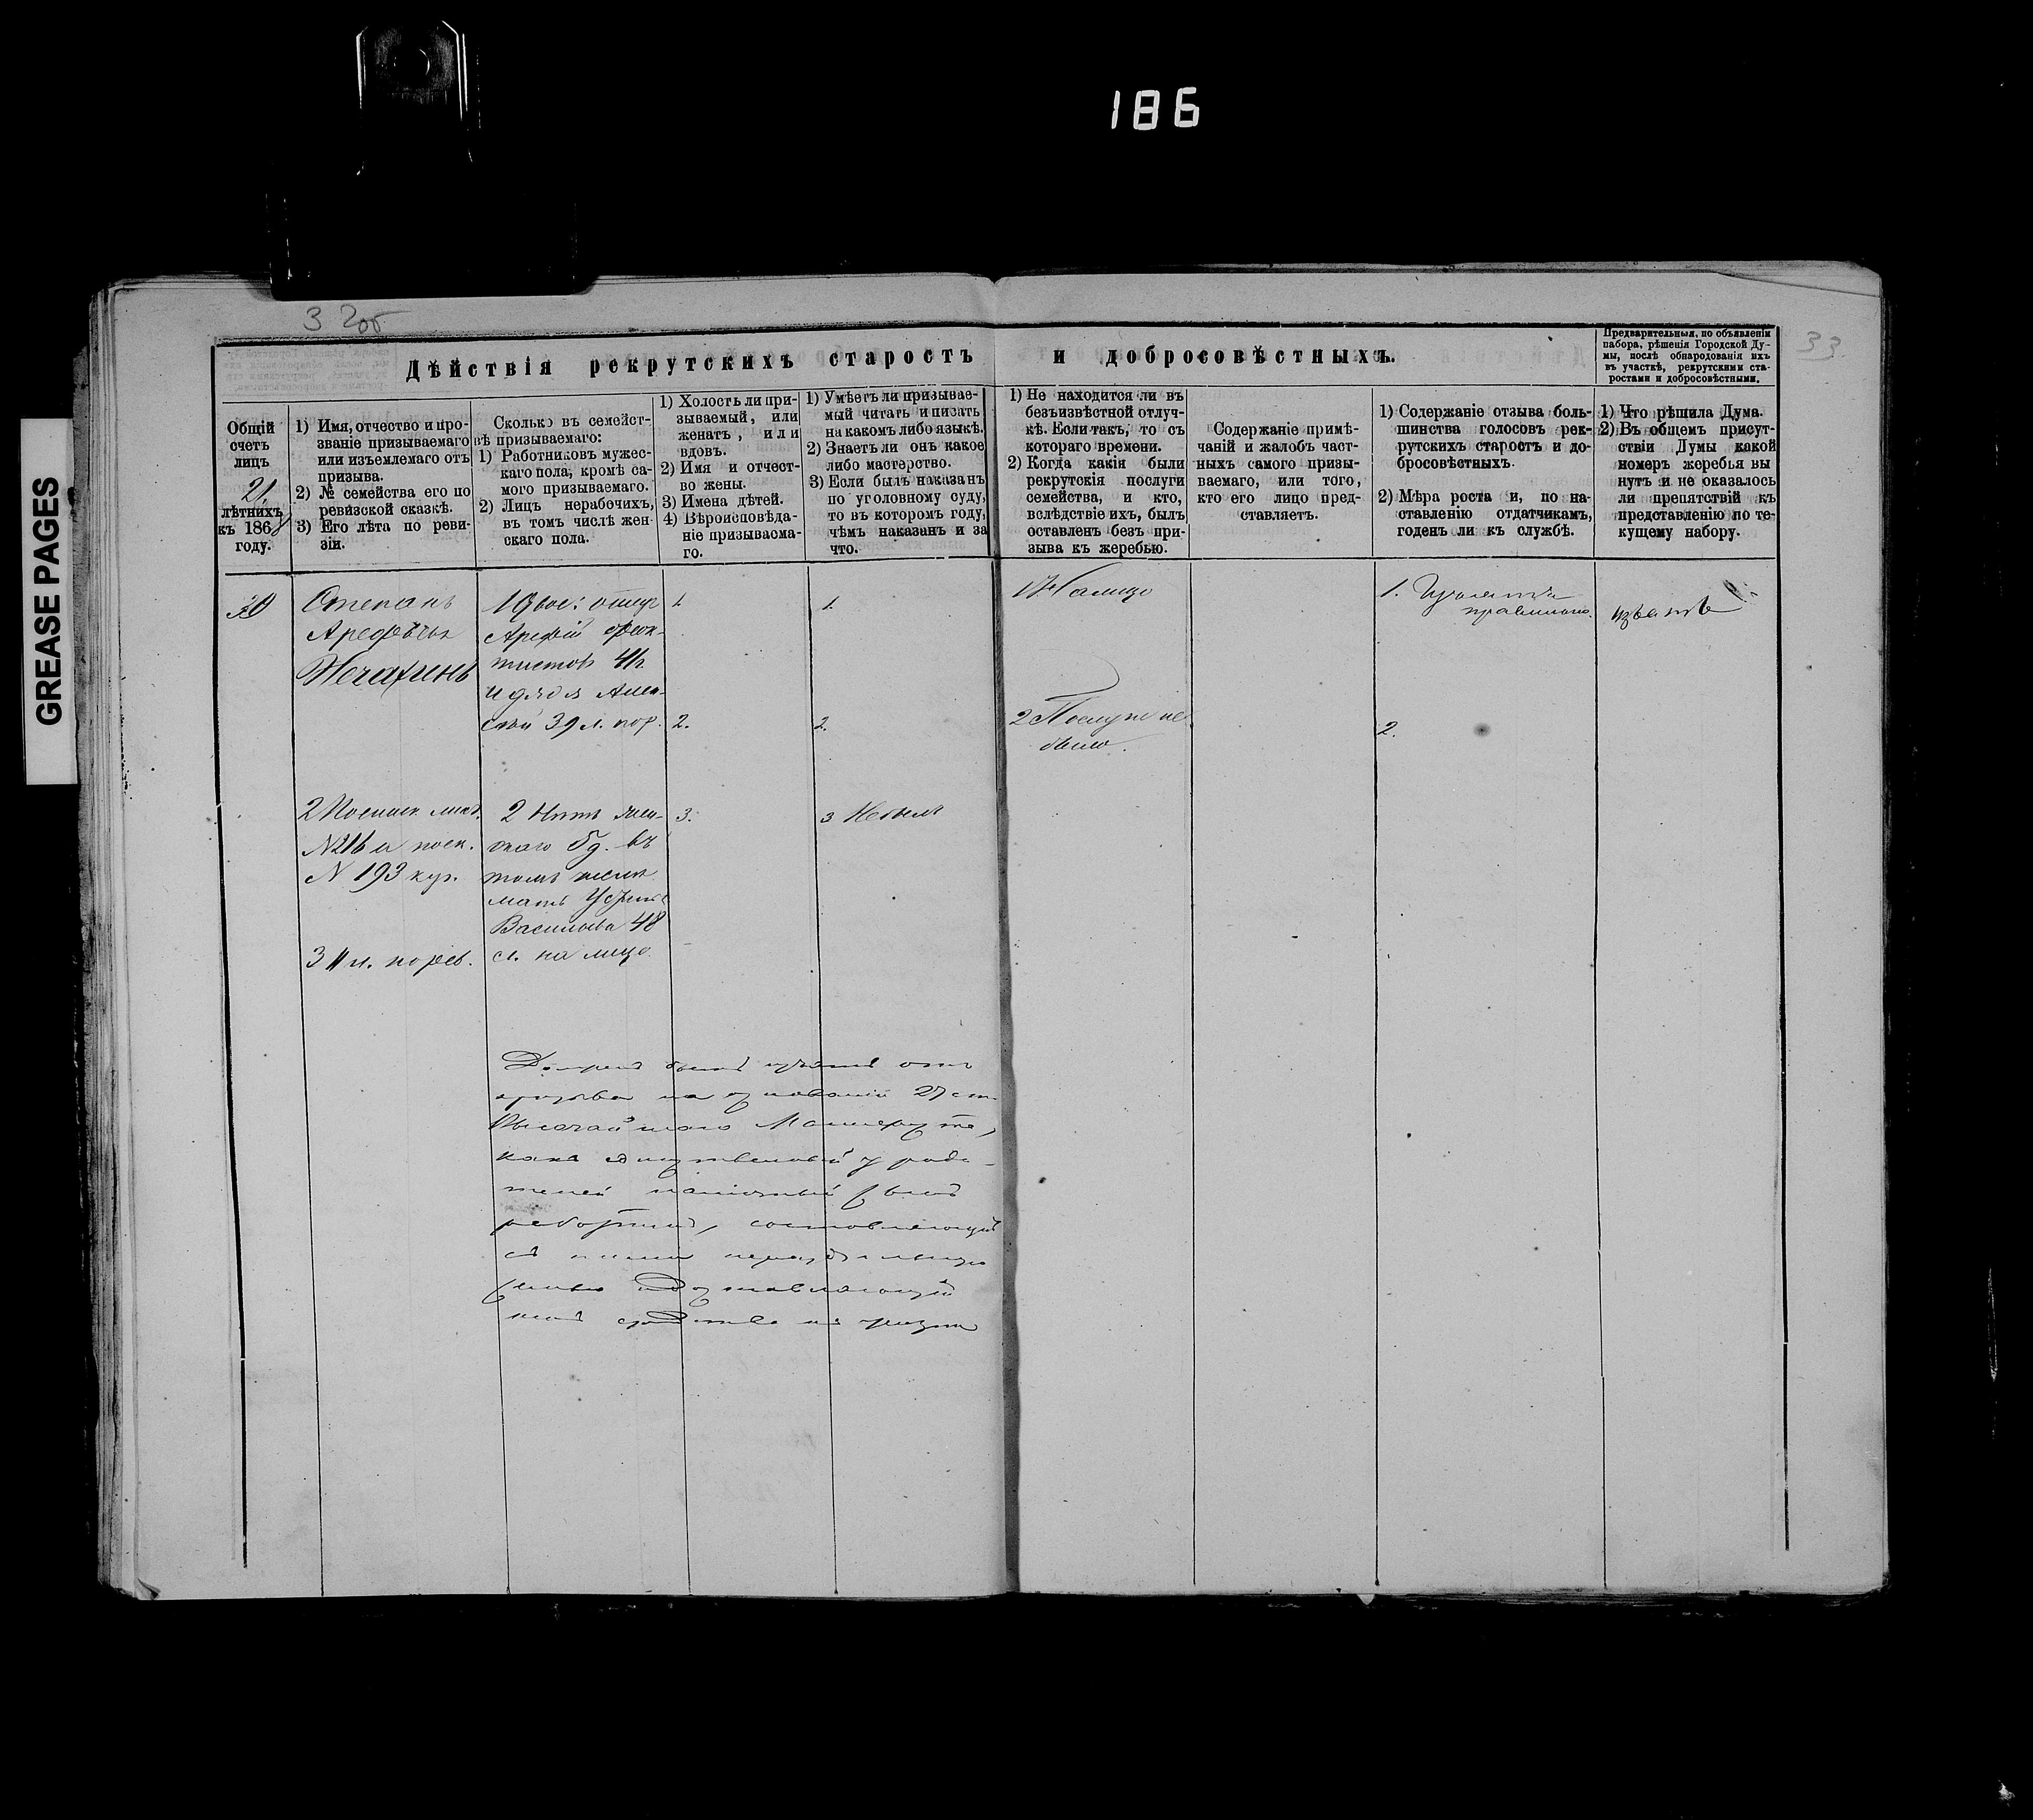 186
GREASE PAGES
32об
33.
Дѣйствія рекрутскихъ старостъ и добросовѣстныхъ.
Предварительныя, по объявленіи
набора, рѣшенія Городской Ду-
мы, послѣ обнародованія ихъ
въ участкѣ, рекрутскими ста-
ростами и добросовѣстными.
Общій
счетъ
лицъ
21
лѣтнихъ
къ 1868
году.
1) Имя, отчество и про-
званіе призываемаго
или изъемлемаго отъ
призыва.
2) № семейства его по
ревизской сказкѣ.
3) Его лѣта по реви-
зіи.
Сколько въ семейст-
вѣ призываемаго:
1) Работниковъ мужес-
каго пола, кромѣ са-
мого призываемаго.
2) Лицъ нерабочихъ,
въ томъ числѣ жен
скаго пола.
1) Холостъ ли при-
зываемый, или
женатъ, или
вдовъ.
2) Имя и отчест-
во жены.
3) Имена дѣтей.
4) Вѣроисповѣда-
ніе призываема-
го.
1) Умѣетъ ли призывае-
мый читать и писать
на какомъ либо языкѣ.
2) Знаетъ ли онъ какое
либо мастерство.
3) Если былъ наказанъ
по уголовному суду,
то въ которомъ году,
чѣмъ наказанъ и за
что.
1) Не находится ли въ
безъизвѣстной отлуч-
кѣ. Если такъ, то съ
котораго времени.
2) Когда какія были
рекрутскія послуги
семейства, и кто,
вслѣдствіе ихъ, былъ
оставленъ безъ при-
зыва къ жеребью.
Содержаніе примѣ-
чаній и жалобъ част-
ныхъ самого призы-
ваемаго, или того,
кто его лицо пред-
ставляетъ.
1) Содержаніе отзыва боль-
шинства голосовъ рек-
рутскихъ старостъ и до-
бросовѣстныхъ.
2) Мѣра роста и, по на-
ставленію отдатчикамъ,
годенъ ли къ службѣ.
1) Что рѣшила Дума.
2) Въ общемъ присут-
ствіи Думы какой
номеръ жеребья вы
нутъ и не оказалось
ли препятствій къ
представленію по те-
кущему набору.
30
Степанъ
Арефьевъ
Нечахинъ
2
№ 216 и
№ 193
3 11 л. по рев.
1 Двое: отецъ
Арефій Феок-
тистовъ 41 л.
и дядя Алек-
сѣй 39 л.
2
мать
Васильева 48
л. на лицо.
1.
2.
3.
1.
2.
3 Не былъ
1 На лицо
2 Послугъ не
было.
1. Изъятъ
правильно.
2.
изъятъ
Долженъ быть изъятъ отъ
призыва на основаніи 27 ст.
Высочайшаго Манифеста,
какъ единственный у роди-
телей наличный сынъ
работникъ, составляющій
съ ними нераздѣльную
семью и доставляющій
имъ средства къ жизни